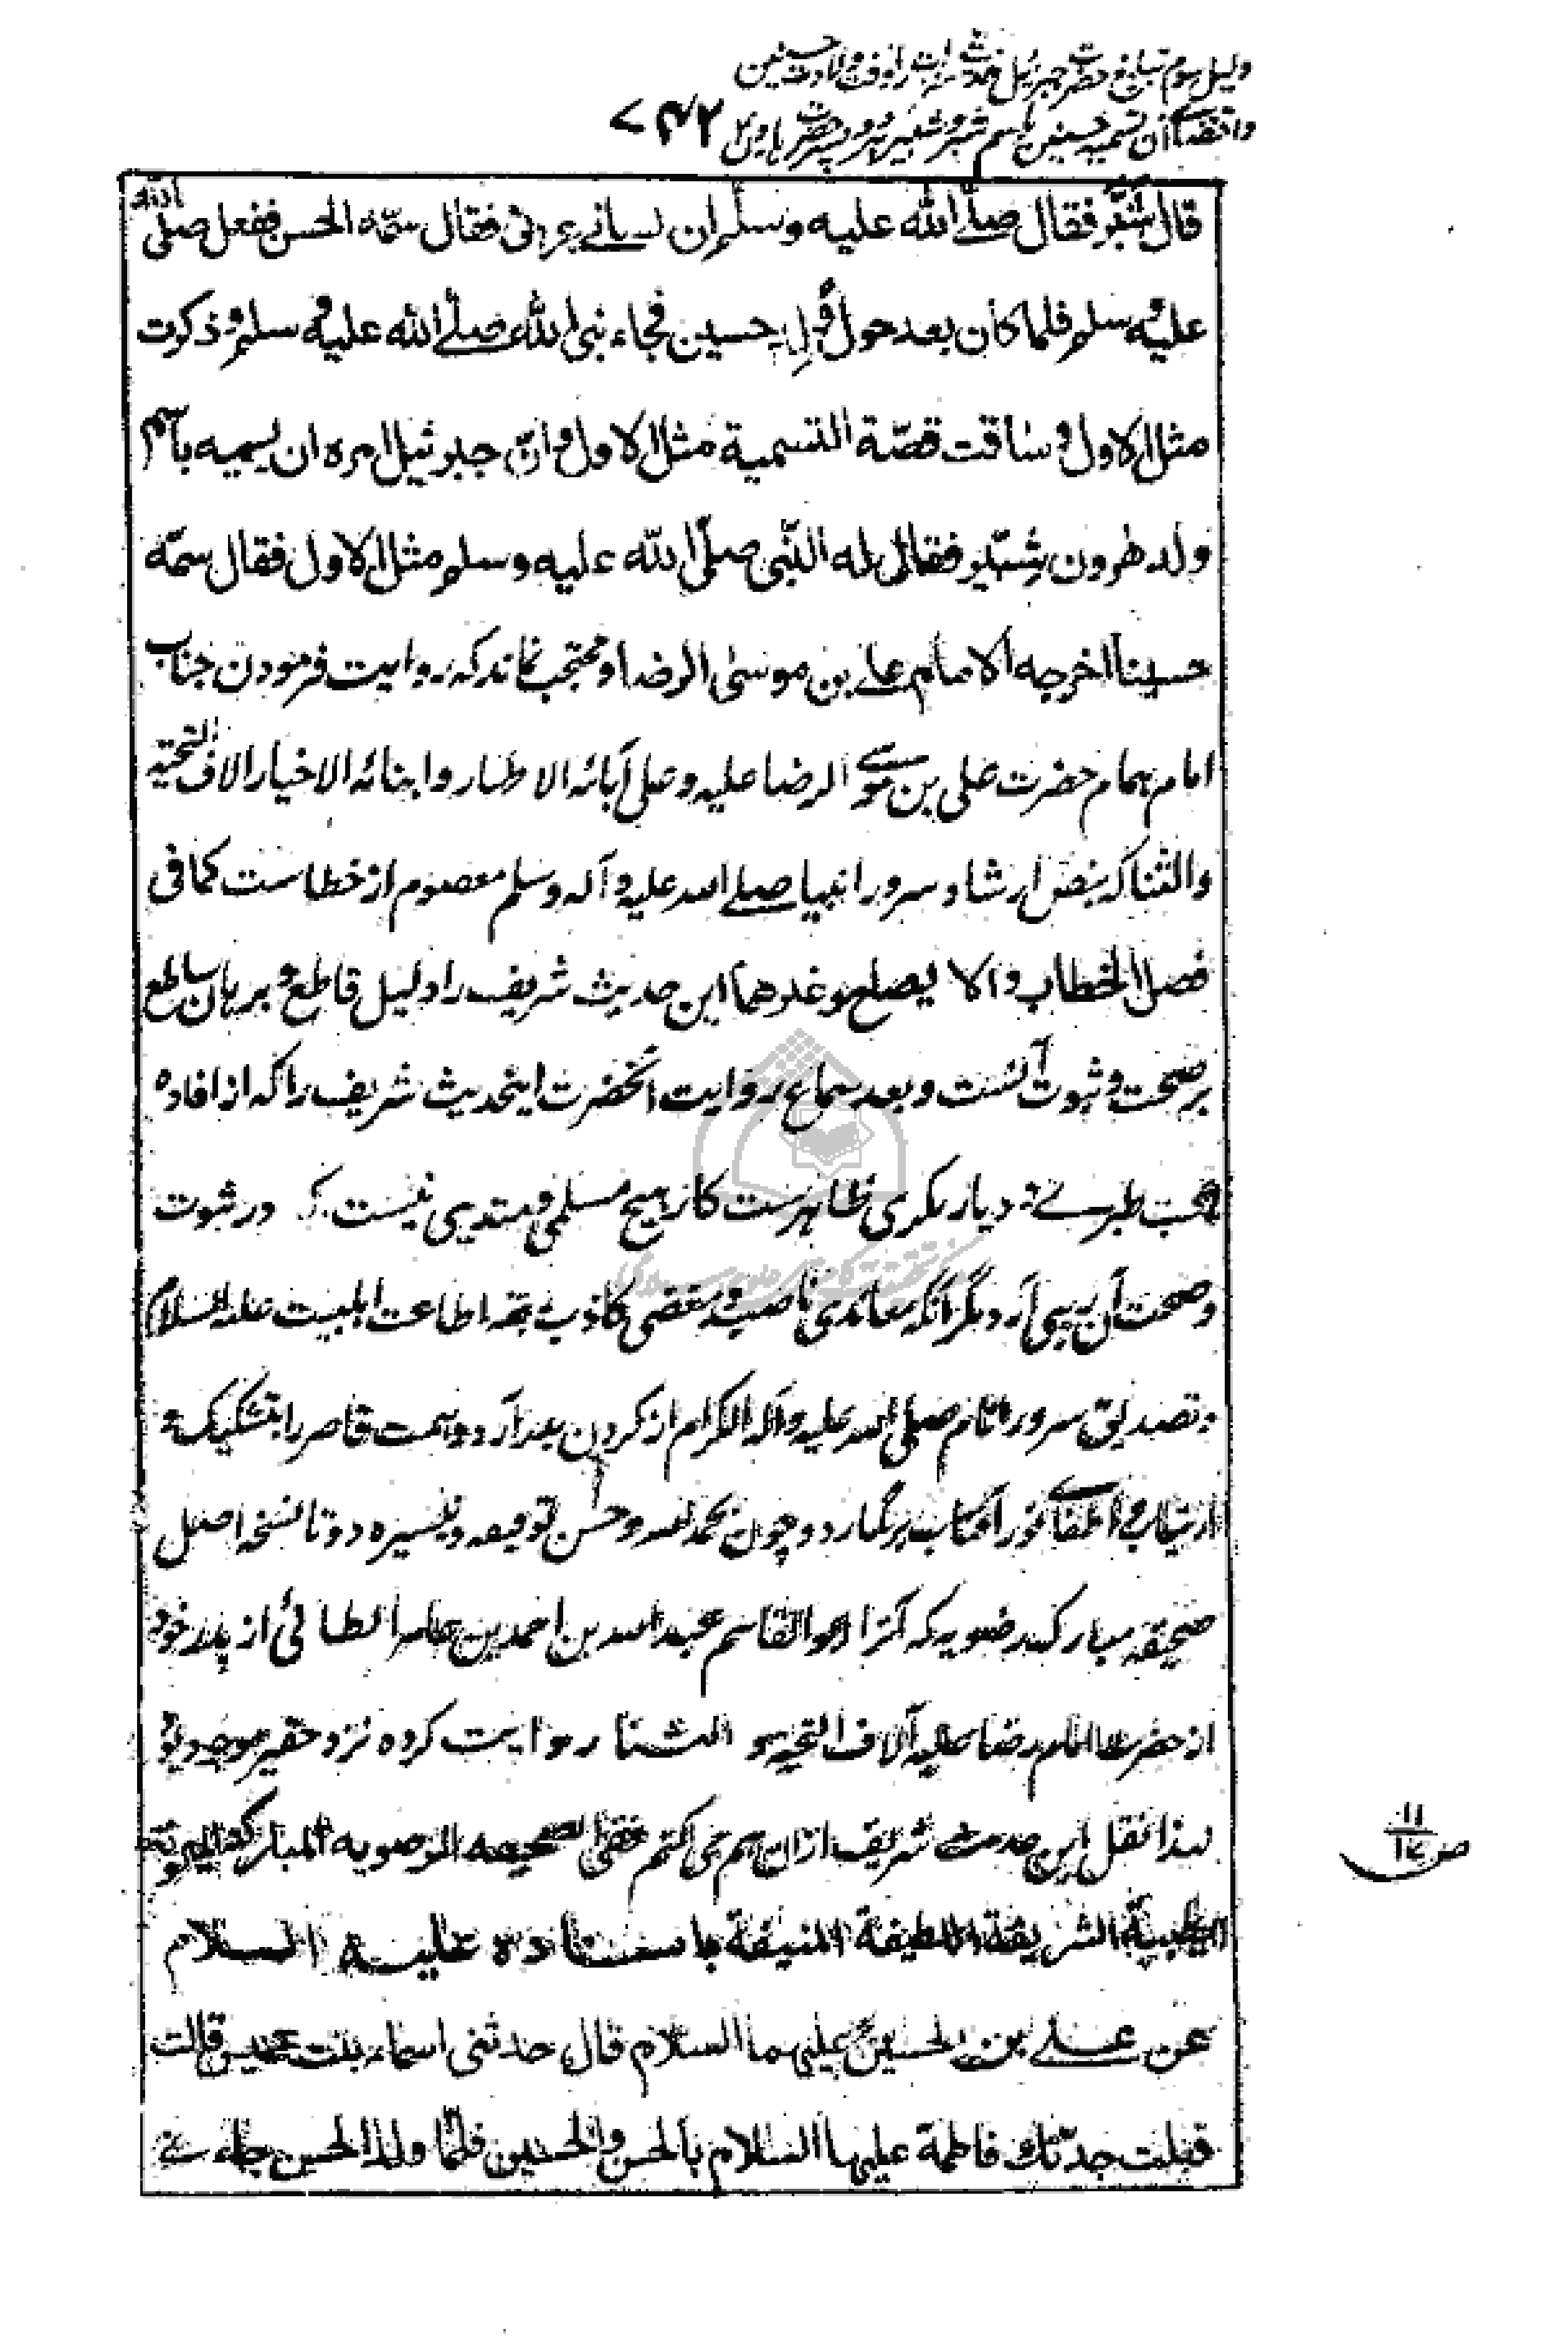 دلیل سوم تبلیغ حضرت جبرئیل وقت ولادت حسنین
آن تسمیه حسنین باسم شبر و شبیر دو پسر حضرت هارون ۷۴۲
قال شبّر فقال صلے الله علیه وسلم ان لسانے عربی فقال سمّه الحسن ففعل صلی الله
علیه و سلم فلما کان بعد حول ولد حسین فجاء نبی الله صلے الله علیه و سلم و ذکرت
مثل الاول و ساقت قصّة التسمیة مثل الاول و انّ جبرئیل امره ان یسمیه باسم
ولد هرون شبّیر فقال له النّبی صلّی الله علیه وسلم مثل الاول فقال سمّه
حسینا اخرجه الامام علے بن موسی الرضا و محتجب نماند که روایت فرمودن جناب
امام همام حضرت علی بن موسے الرضا علیه و علی آبائه الاطهار و ابنائه الاخیار الاف التحیة
والثنا که بنص ارشاد سرور انبیا صلے الله علیه و آله وسلم معصوم از خطاست کما فی
فصل الخطاب و الا یصلح وغیرهما این حدیث شریف را دلیل قاطع و برهان ساطع
بر صحت و ثبوت آنست و بعد سماع روایت آنحضرت اینحدیث شریف را که از افاده
محب طبرے و دیاربکری ظاهرست کار هیچ مسلمی و متدینی نیست که در ثبوت
و صحت آن آرد مگر آنکه معاندی ناصب و مبغضی کاذب ربقه اطاعت اهلبیت علیهم السلام
و تصدیق سرور انام صلی الله علیه و آله الکرام از گردن بدر آرد و همت قاصر را بتشکیک و
ارتیاب و اطفاے نور آفتاب برگمارد و چون بحمد الله و حسن توفیقه و تیسیره دو تا نسخه اصل
صحیفه مبارکه رضویه که آنرا ابو القاسم عبد الله بن احمد بن عامر الطائی از پدر خود
از حضرت امام رضا علیه آلاف التحیة و الثنا روایت کرده نزد حقیر موجود
لهذا نقل این حدیث شریف ازان هم می کنم ففی الصحیفه الرضویه المبارکة
الطیبة الشریفة اللطیفة المنیفة باسناده علیه السلام
عن علے بن الحسین علیهما السلام قال حدثنی اسماء بنت عمیس قالت
قبلت جدّتک فاطمة علیها السلام بالحسن والحسین فلمّا ولد الحسن جاء نے
ص ۱۱/۱۲